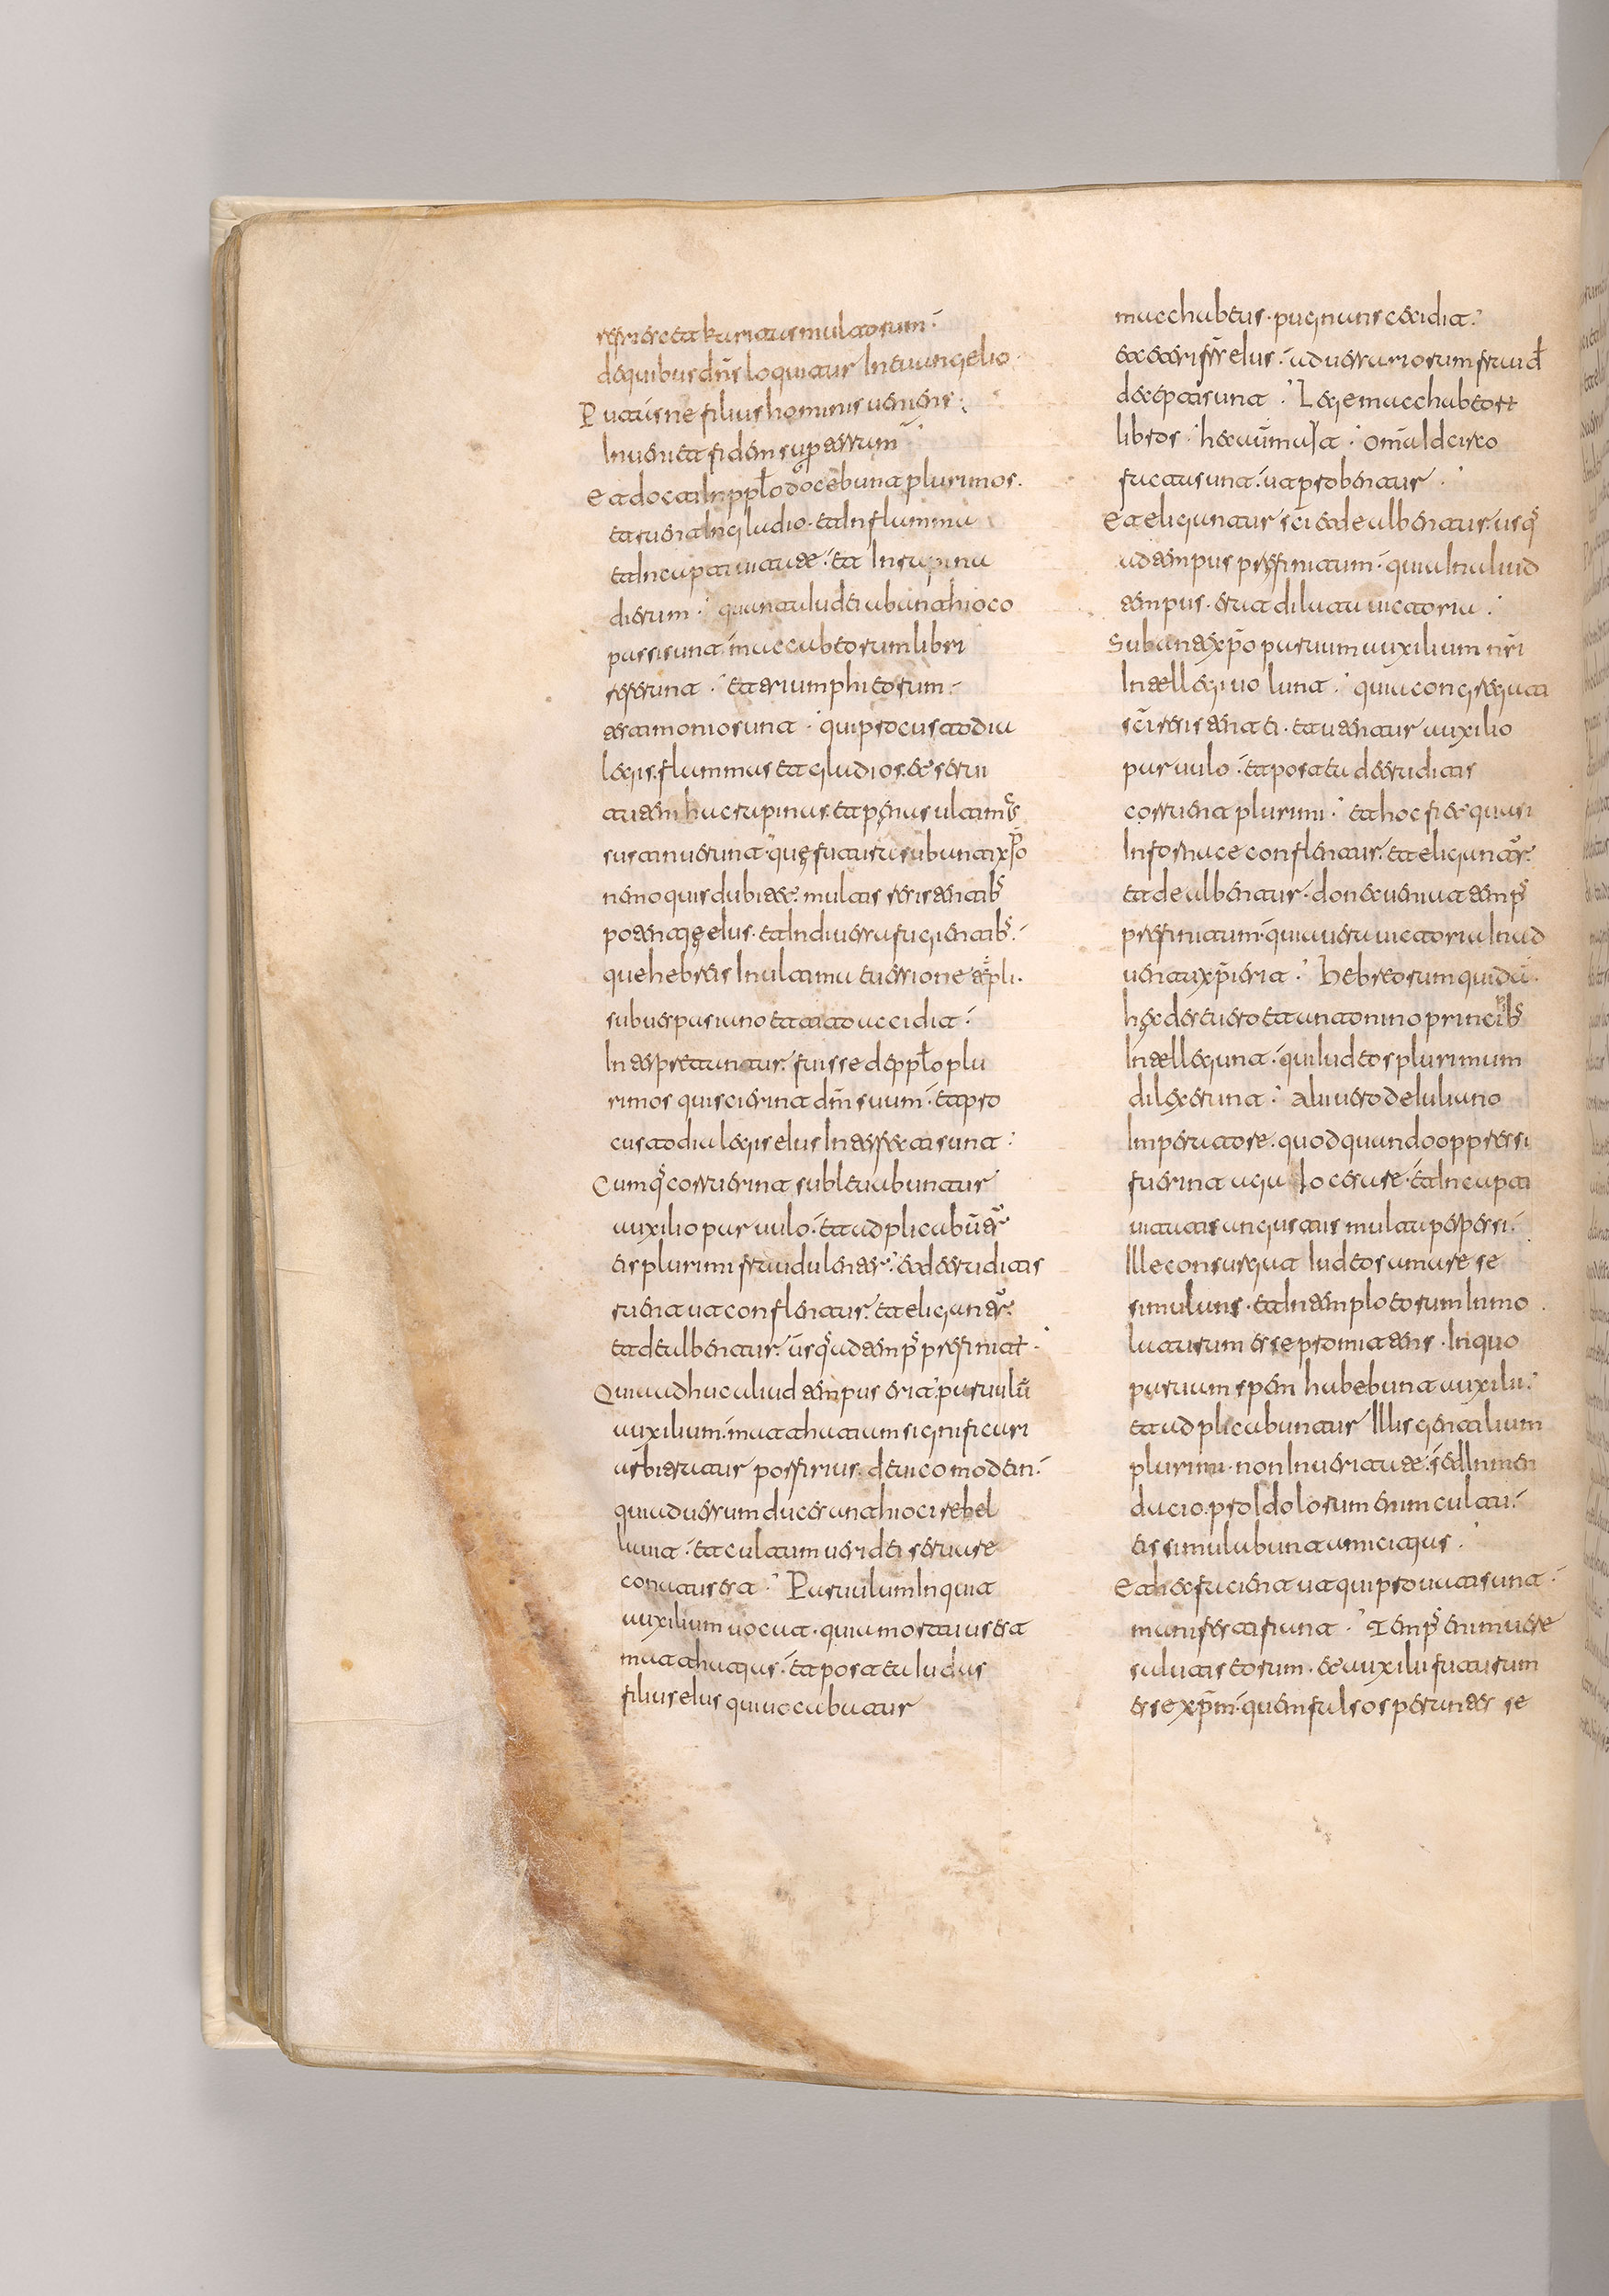 refriget karitas multorum.
de quibus dn̄s loquitur In euangelio.
Putasne filius hominis ueniens.
Inueniet fidem sup terram.
Et docti In pplo docebunt plurimos.
et ruent In gladio. et In flamma
et In captiuitate. et In rapina
dierum. quanta Iudei ab anthioco
passi sunt. maccabeorum libri
referunt. et triumphi eorum.
testimonio sunt. qui pro custodia
legis. flammas et gladios. et serui
tutem hac rapinas. et penas ultimas
sustinuerunt. quę futura sub antixpo
nemo quis dubitet. multis resistentibꝰ
potentię eIus. et In diuersa fugientibꝰ.
que hebrei In ultima euersione templi.
sub uespasiano et tito accidit.
Interpretantur. fuisse de pplo plu
rimos qui scierint dm̄ suum. et pro
custodia legis eIus Interfecti sunt.
Cumqꝰ corruerint subleuabuntur
auxilio paruulo. et adplicabūtꝰr
eis plurimi fraudulenter. et de eruditis
ruent ut conflentur. et eligantꝰr.
et dealbentur. usqꝰ ad tempꝰ prefinitū.
Quia adhuc aliud tempus erit. paruulū
auxilium. mathatium significari
arbitratur porfirius. de uico modein.
qui aduersum duces anthioci rebel
lauit. et cultum ueri dei seruare
conatus est. Paruulum Inquit
auxilium uocat. quia mortuus est
mathatias. et postea Iudas
filius eIus qui uocabatur
macchabeus. pugnans cecidit.
et ceteri frs̄ eIus. aduersariorum fraud
decepti sunt. Lege macchabeorꝫ
libros. hec autem multa. omnia Idcirco
facta sunt. ut probentur.
Et eligantur sci et dealbentur. usqꝰ
ad tempus prefinitum. quia In aliud
tempus. erat dilata uictoria.
Sub antixpo paruum auxilium nri
Intellegi uolunt. quia congregati
sci resistent ei. et utentur auxilio
paruulo. et postea de eruditis
corruent plurimi. et hoc fiet quasi
In fornace conflentur. et eligantꝰr.
et dealbentur. donec ueniat tempꝰ
prefinitum. quia uera uictoria In ad
uentu xpi erit. Hebreorum quidā
hęc de seuero et antonino principibꝰ
Intellegunt. qui Iudeos plurimum
dilexerunt. Alii uero de Iuliano
Imperatore. quod quando oppressi
fuerint a galo cesare. et In capti
uitatis angustiis multa perpessi.
Ille consurgat Iudeos amare se
simulans. et In templo eorum Inmo
laturum esse promittens. In quo
paruum spem habebunt auxilii.
et adplicabuntur Illis gentilium
plurimi. non In ueritate. sed In men
dacio. pro Idolorum enim cultu.
eis simulabunt amicitias.
Et hec facient ut qui probati sunt.
manifesti fiant. Tempꝰ enim uere
salutis eorum. et auxilii futurum
esse xpm. quem falso sperant esse